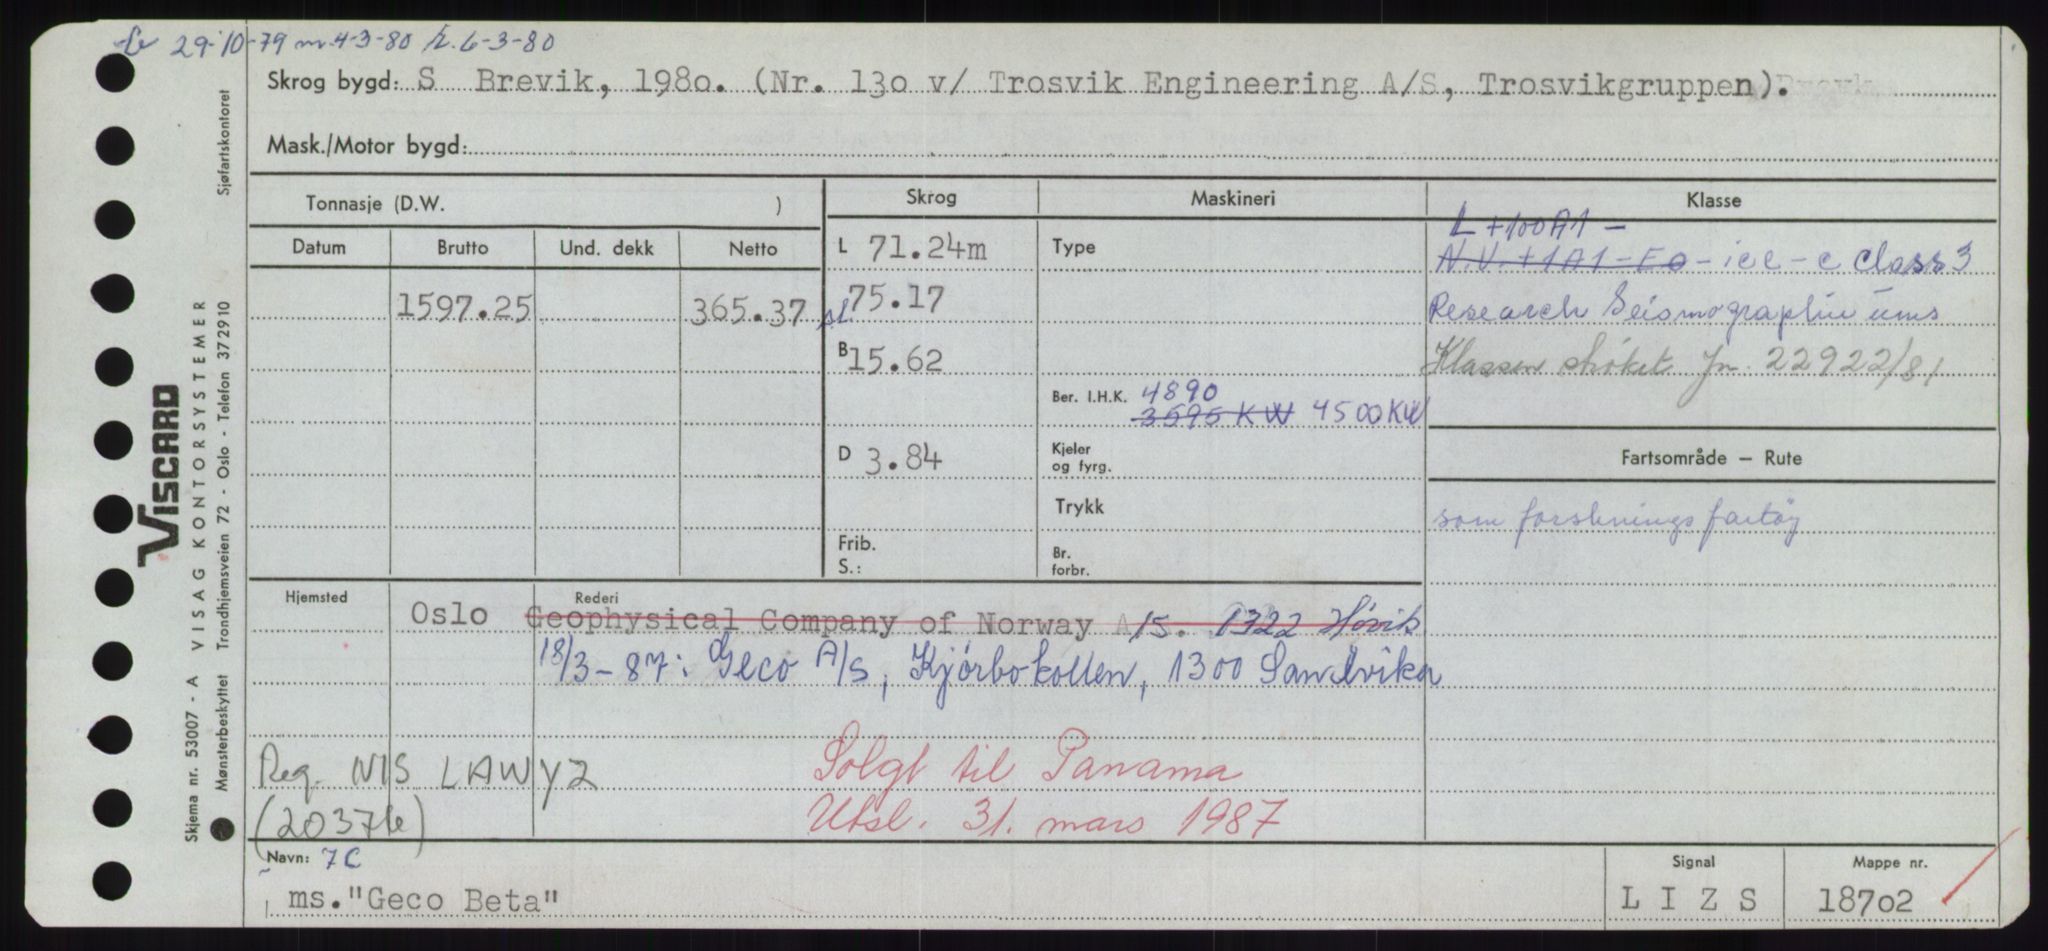 29-10-79 m. 4-3-80 k. 6-3-80
Skrog bygd: S Brevik, 1980. (Nr. 130 v/ Trosvik Engineering A/S, Trosvikgruppen).
Mask./Motor bygd:
Tonnasje (D.W. )
Skrog Maskineri Klasse
Datum Brutto Und. dekk Netto
L 71.24m
Type
L +100A1 -
N.V. +1A1-EO - ice - c class 3
1597.25 365.37
sl 75.17
Research Seismographic ums
B 15.62
Klassen strøket Jn. 22922/81
Ber. I.H.K. 4890
3595 KW 4500 KW
D 3.84
Kjeler
og fyrg.
Fartsområde – Rute
Trykk
som forsknings fartøy
Frib.
S.:
Br.
forbr.
Hjemsted Rederi
Oslo Geophysical Company of Norway A/S. 1322 Høvik
18/3-87: Geco A/S, Kjørbokollen, 1300 Sandvika
Reg. NIS LAWY2
Solgt til Panama
(20376)
Utsl. 31. mars 1987
Navn: 7C
ms. "Geco Beta"
Signal
L I Z S
Mappe nr.
18702
VISCARD
Skjema nr. 53007 - A VISAG KONTORSYSTEMER
Mønsterbeskyttet Trondhjemsveien 72 - Oslo - Telefon 372910 Sjøfartskontoret